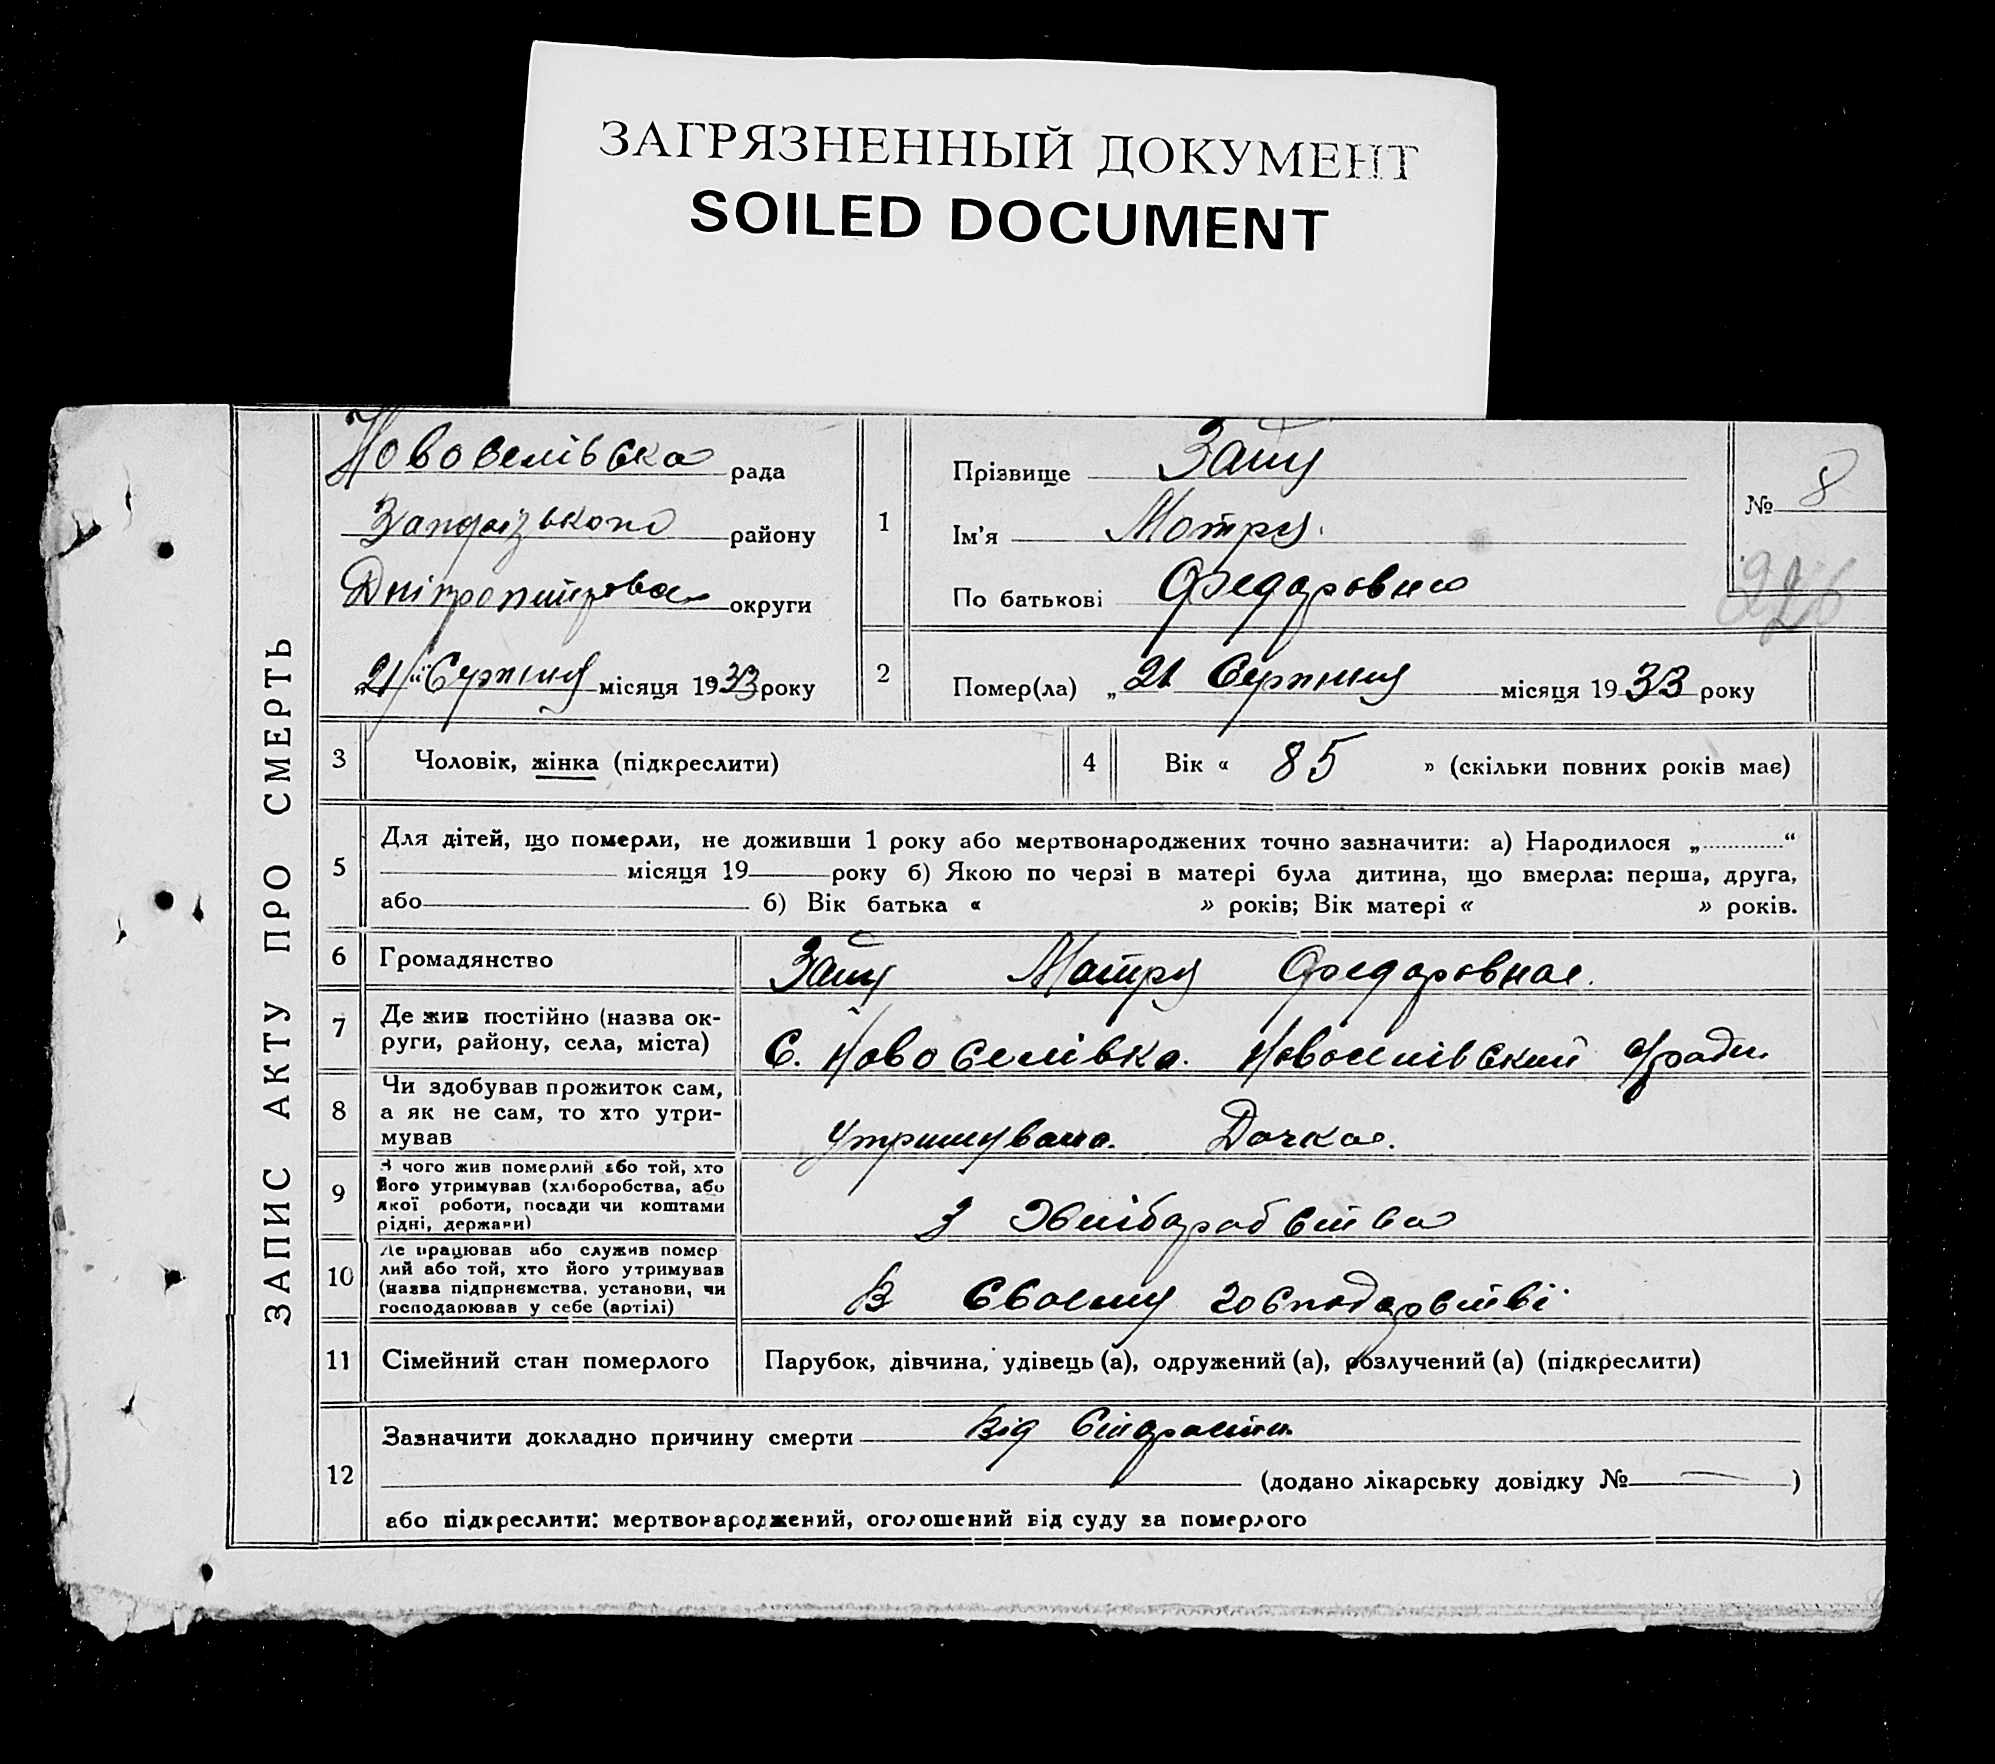 ЗАГРЯЗНЕННЫЙ ДОКУМЕНТ
SOILED DOCUMENT
ЗАПИС АКТУ ПРО СМЕРТЬ
Новоселівска рада
району
округи
„21“ Серпня місяця 1933 року
1
Прізвище
Ім'я Мотря
По батькові Федоровна
№ 8
226
2
Помер(ла) „21 Серпня місяця 1933 року
3
Чоловік, жінка (підкреслити)
4
Вік « 85 » (скільки повних років має)
5
Для дітей, що померли, не доживши 1 року або мертвонароджених точно зазначити: а) Народилося „............“
місяця 19 року б) Якою по черзі в матері була дитина, що вмерла: перша, друга,
або б) Вік батька « » років; Вік матері « » років.
6
Громадянство
Мотря Федоровна.
7
Де жив постійно (назва ок-
руги, району, села, міста)
С. Новоселівка. Новоселівский
8
Чи здобував прожиток сам,
а як не сам, то хто утри-
мував
Утримувала. Дочка.
9
З чого жив померлий або той, хто
його утримував (хліборобства, або
якої роботи, посади чи коштами
рідні, держави)
З Хліборобства
10
Де працював або служив помер
лий або той, хто його утримував
(назва підприємства, установи, чи
господарював у себе (артілі)
В Своєму господарстві
11
Сімейний стан померлого
Парубок, дівчина, удівець (а), одружений (а), розлучений (а) (підкреслити)
12
Зазначити докладно причину смерти Від Старости
(додано лікарську довідку № — )
або підкреслити: мертвонароджений, оголошений від суду за померлого